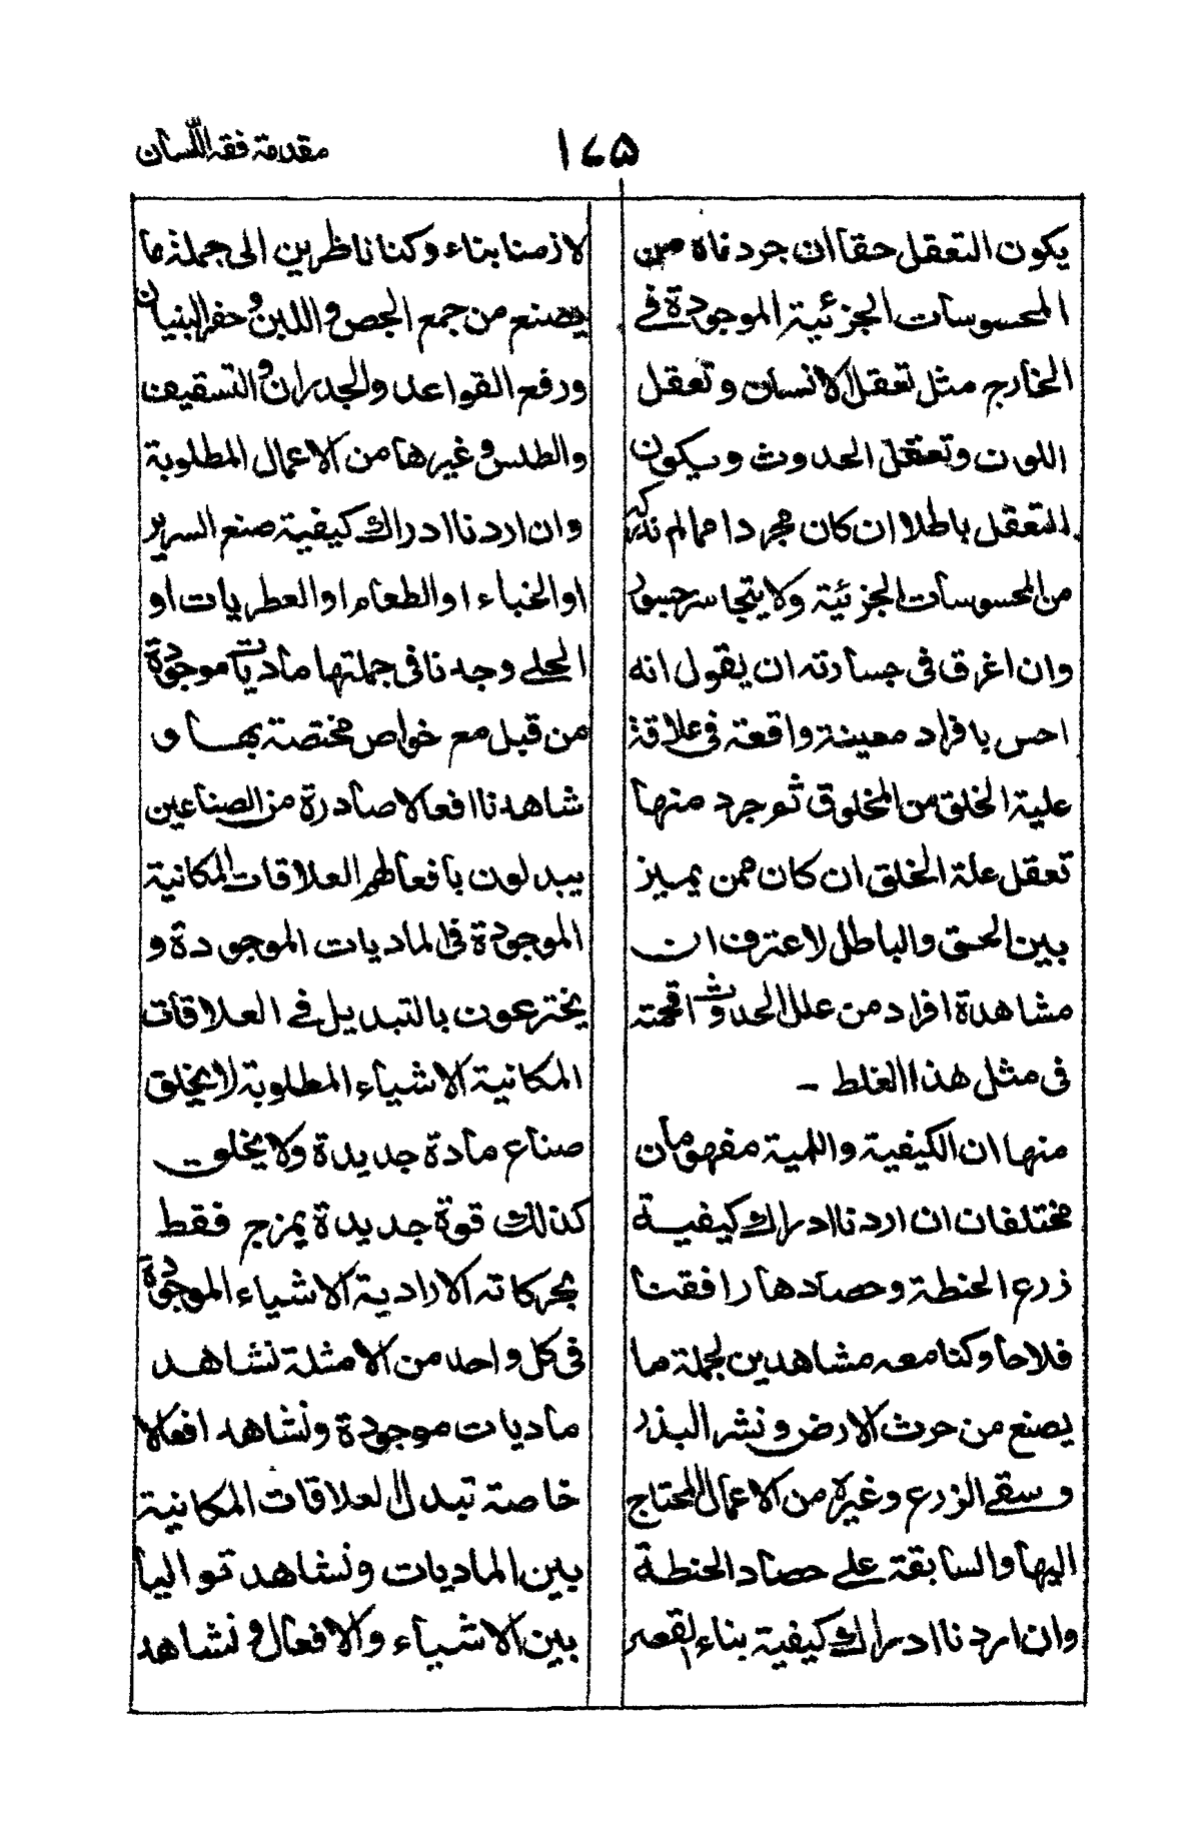 مقدمة فقه اللسان
۱۷۵
يكون التعقل حقا ان جردناه من
المحسوسات الجزئية الموجودة في
الخارج مثل تعقل الانسان وتعقل
اللون وتعقل الحدوث ويكون
التعقل باطلا ان كان مجردا مما لم ندركه
من المحسوسات الجزئية ولا يتجاسر
وان اغرق في جسارته ان يقول انه
احس بافراد معينة واقعة في علاقة
علية الخلق من المخلوق ثم جرد منها
تعقل علة الخلق ان كان ممن يميز
بين الحق والباطل لاعترف ان
مشاهدة افراد من علل الحدوث اقحمته
في مثل هذا الغلط –
منها ان الكيفية واللمية مفهومان
مختلفان ان اردنا ادراك كيفية
زرع الحنطة وحصادها رافقنا
فلاحا وكنا معه مشاهدين لجملة ما
يصنع من حرث الارض ونشر البذر
وسقي الزرع وغيره من الاعمال المحتاج
اليها والسابقة على حصاد الحنطة
وان اردنا ادراك كيفية بناء القصر
لازمنا بناء وكنا ناظرين الى جملة ما
يصنع من جمع الجص واللبن وحفر البنيان
ورفع القواعد والجدران والتسقيف
والطلس وغيرها من الاعمال المطلوبة
وان اردنا ادراك كيفية صنع السرير
او الخباء او الطعام او العطريات او
الحلي وجدنا في جملتها ماديات موجودة
من قبل مع خواص مختصة بها و
شاهدنا افعالا صادرة من الصناعين
يبدلون بافعالهم العلاقات المكانية
الموجودة في الماديات الموجودة و
يخترعون بالتبديل في العلاقات
المكانية الاشياء المطلوبة لا يخلق
صناع مادة جديدة ولا يخلق
كذلك قوة جديدة يمزج فقط
بحركاته الارادية الاشياء الموجودة
في كل واحد من الامثلة نشاهد
ماديات موجودة ونشاهد افعالا
خاصة تبدل العلاقات المكانية
بين الماديات ونشاهد تواليا
بين الاشياء والافعال ونشاهد